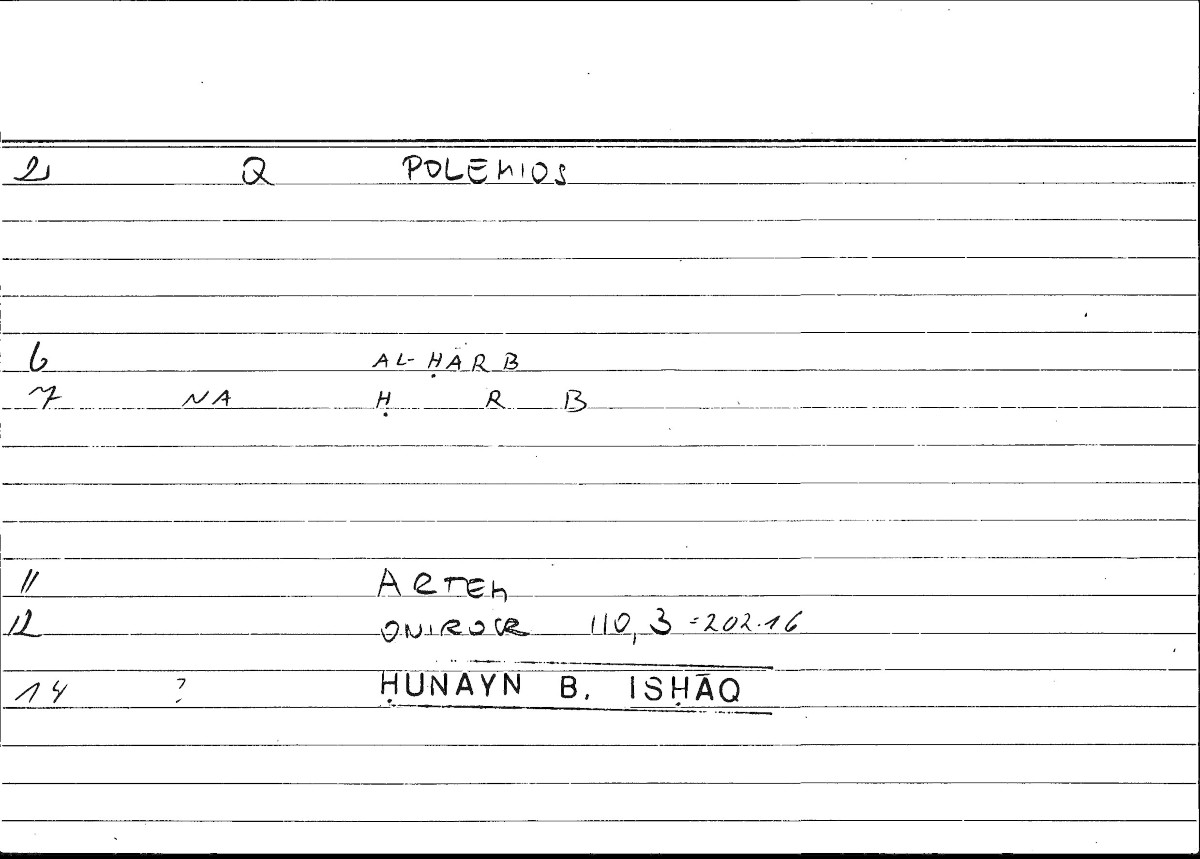 2 Q POLEMIOS
6 AL-ḤARB
7 NA Ḥ R B
11 ARTEM
12 ONIROCR 110,3=202.16
14 ? ḤUNAYN B. ISḤĀQ